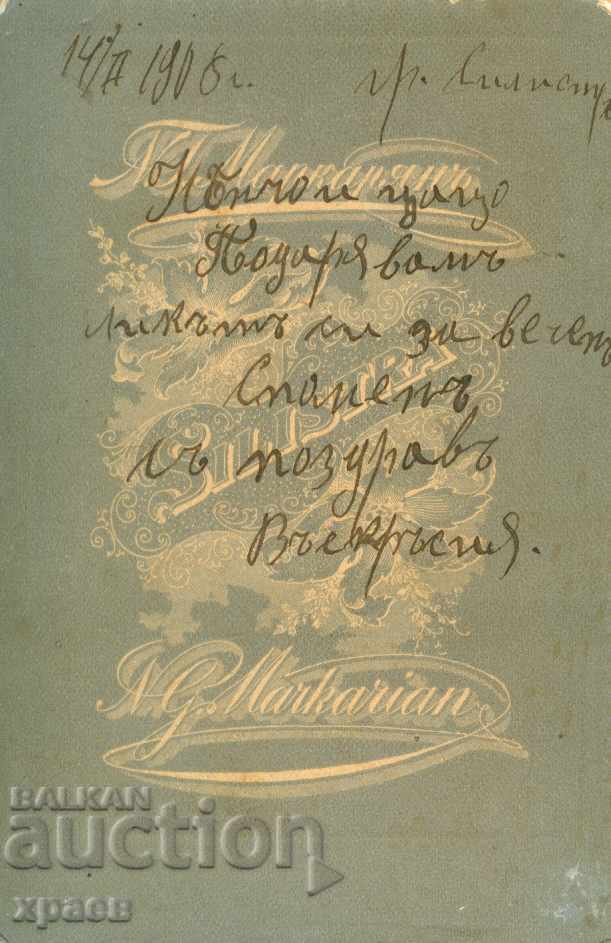 14/II 1908 г.
гр. Силистр
Н. Г. Маркарянъ
Подарявамъ
ликътъ си за веченъ
Споменъ
съ поздравъ
N. G. Markarian
BALKAN
auction
храев